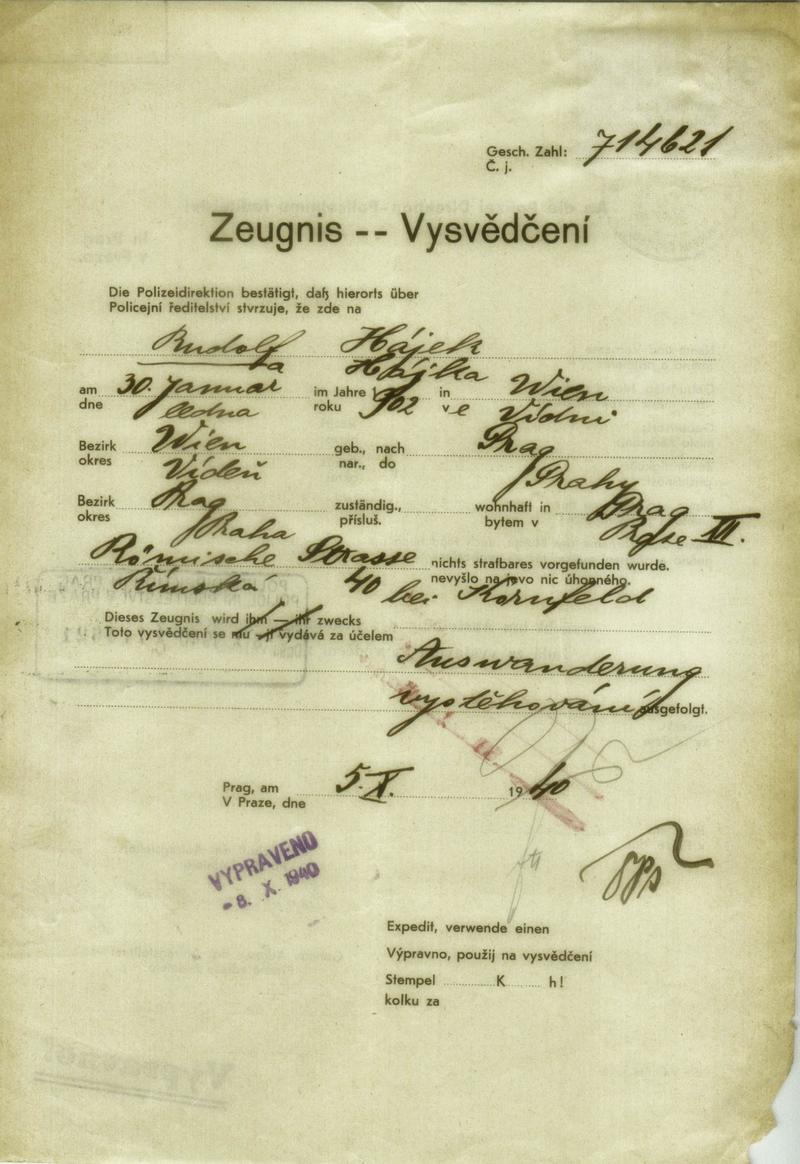 Gesch. Zahl: 714621
Č. j.
Zeugnis -- Vysvědčení
Die Polizeidirektion bestätigt, daß hierorts über
Policejní ředitelství stvrzuje, že zde na
Rudolf Hájek
a Hájka
am 30. Januar im Jahre 1902 in Wien
dne ledna roku v e Vídni
Bezirk Wien geb., nach Prag
okres Vídeň nar., do Prahy
Bezirk Prag zuständig., wohnhaft in Prag
okres Praha přísluš. bytem v Praze XII.
Römische Strasse nichts strafbares vorgefunden wurde.
nevyšlo na jevo nic úhonného.
Římská 40 bei Kornfeld
Dieses Zeugnis wird ihm — ihr zwecks
Toto vysvědčení se mu - jí vydává za účelem
Auswanderung
vystěhování ausgefolgt.
Prag, am 5. X. 1940
V Praze, dne
VYPRAVENO
- 8. X. 1940
Expedit, verwende einen
Výpravno, použij na vysvědčení
Stempel K h!
kolku za